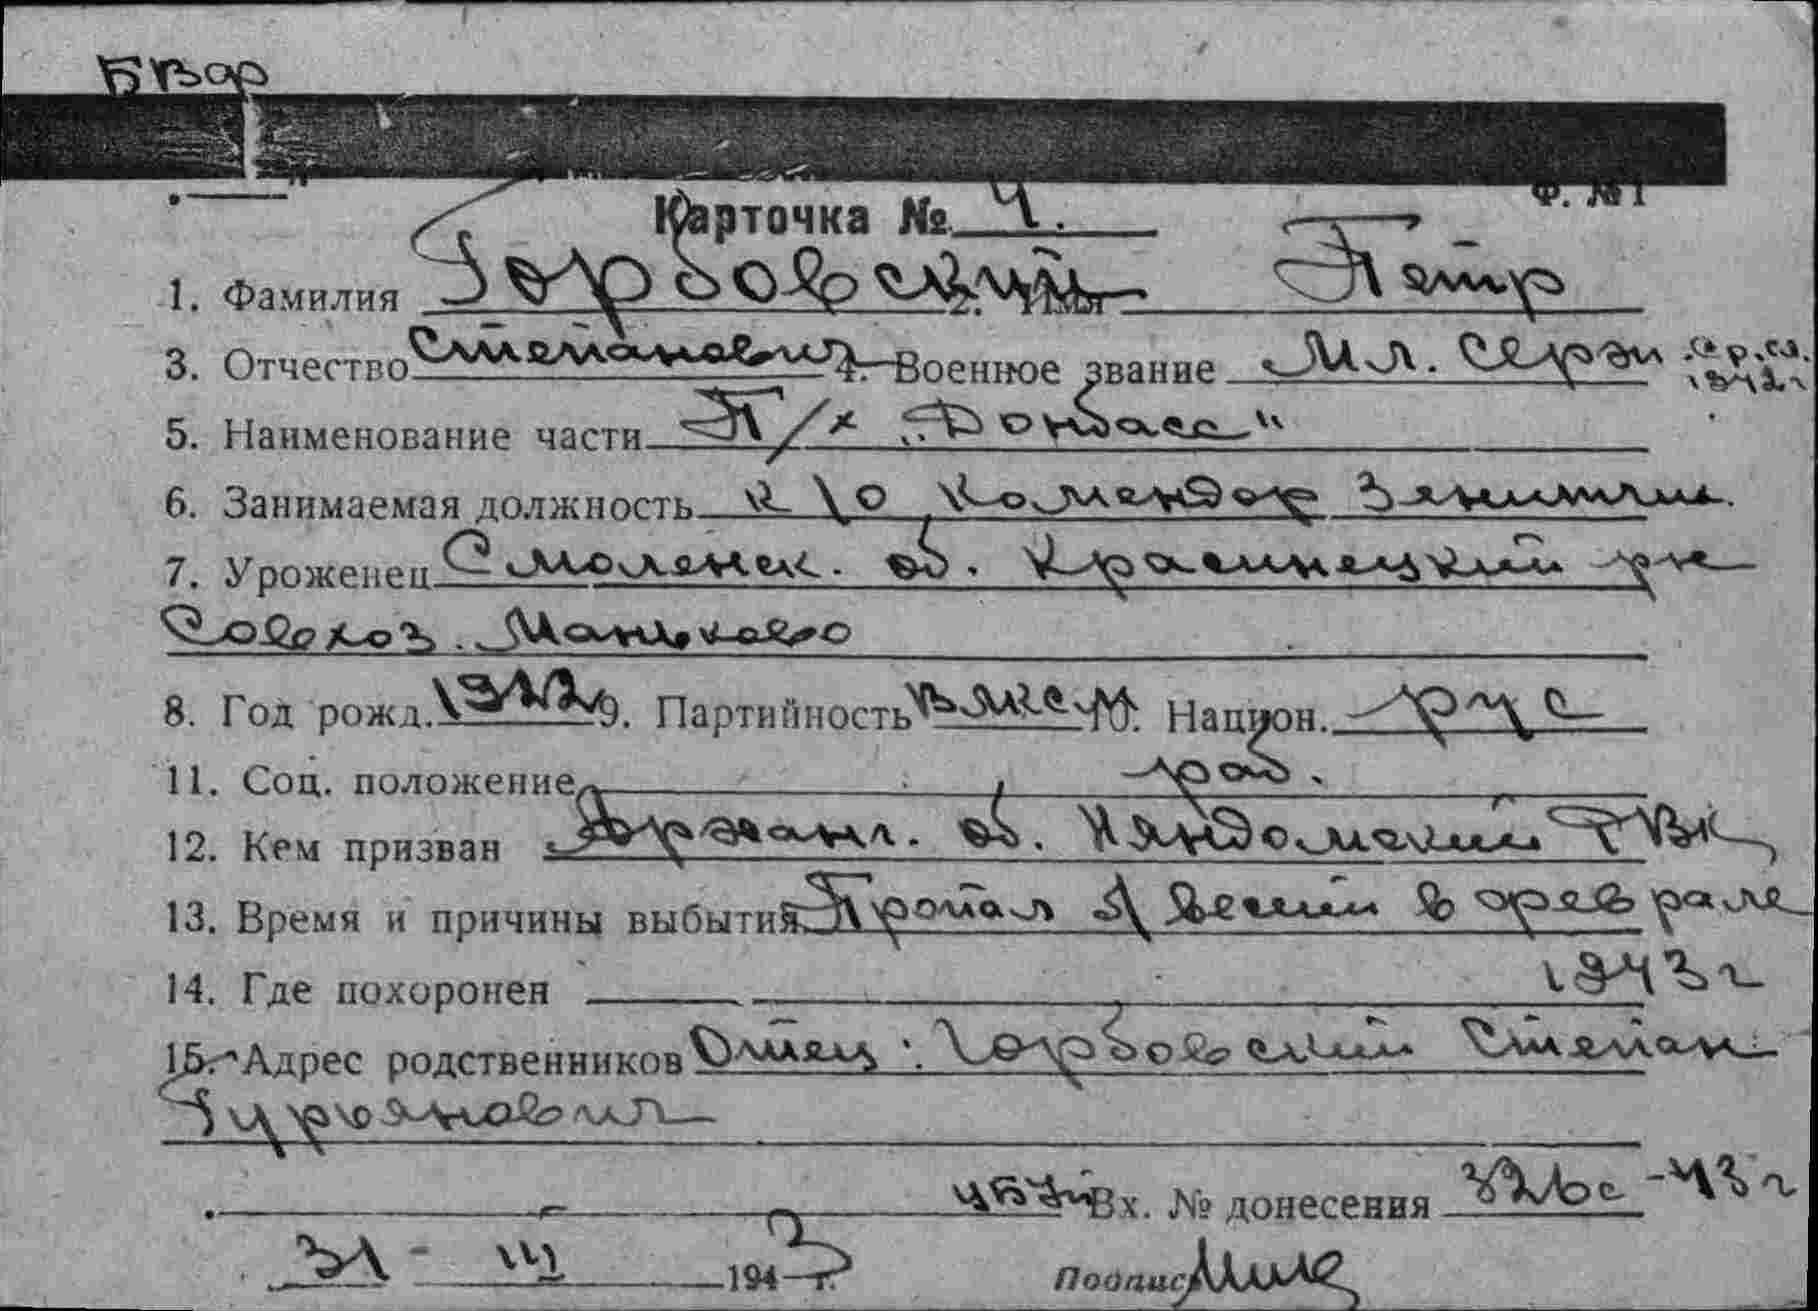 Ф. № 1
Карточка № 4.
1. Фамилия Горбовский 2. Имя Петр
3. Отчество Степанович 4. Военное звание Мл. Серж ср. сл. 1942 г
5. Наименование части П/х „Донбасс"
6. Занимаемая должность к/о комендор зенитчик.
7. Уроженец Смоленск. об. Краснинецкий рн
Совхоз. Маньково
8. Год рожд. 1922 9. Партийность ВЛКСМ 10. Национ. рус
11. Соц. положение раб.
12. Кем призван Арханг. об. Няндомский РВК
13. Время и причины выбытия Пропал б/вести в феврале
14. Где похоронен 1943 г
15. Адрес родственников Отец: Горбовский Степан
Гурьянович
Вх. № донесения 326с -43 г
31 - III 1943 г. Подпись